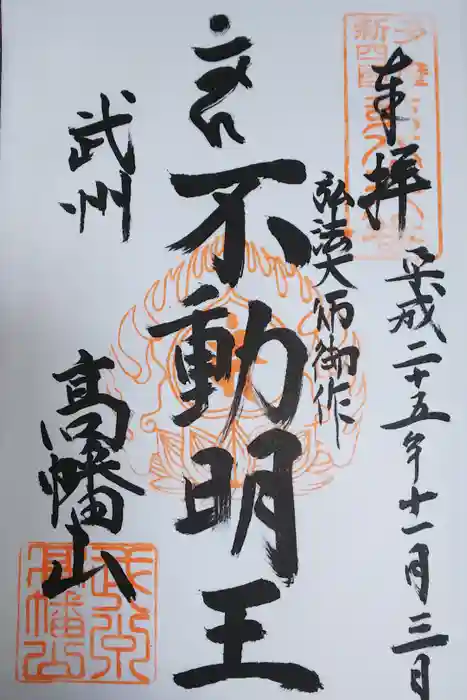 奉拝
平成二十五年十一月三日
弘法大師御作
不動明王
武州
高幡山